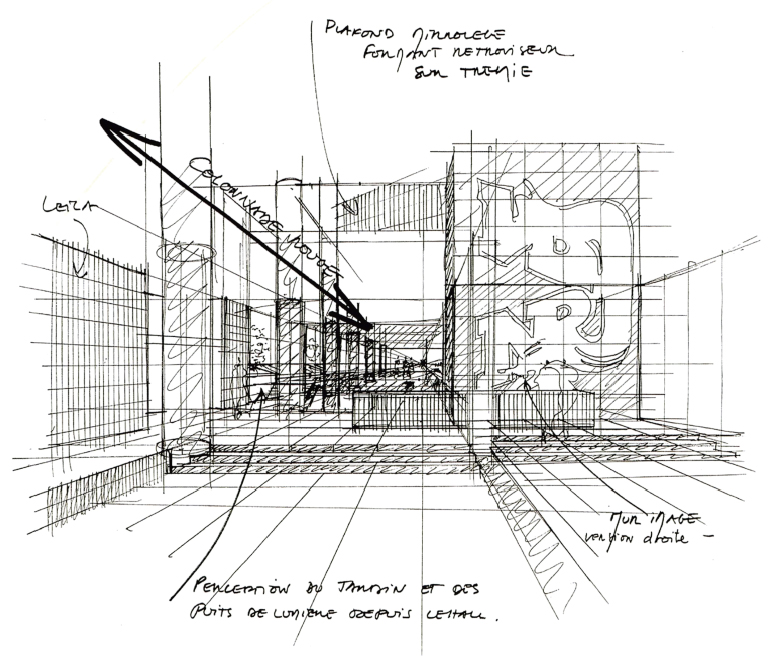 PLAFOND MIRROLEGE
FORMANT RETROVISEUR
SUR TREMIE
COLONNADE ROUGE
MUR IMAGE
VERSION droite -
PERCEPTION DU JARDIN ET DES
PUITS DE LUMIERE DEPUIS LE HALL.